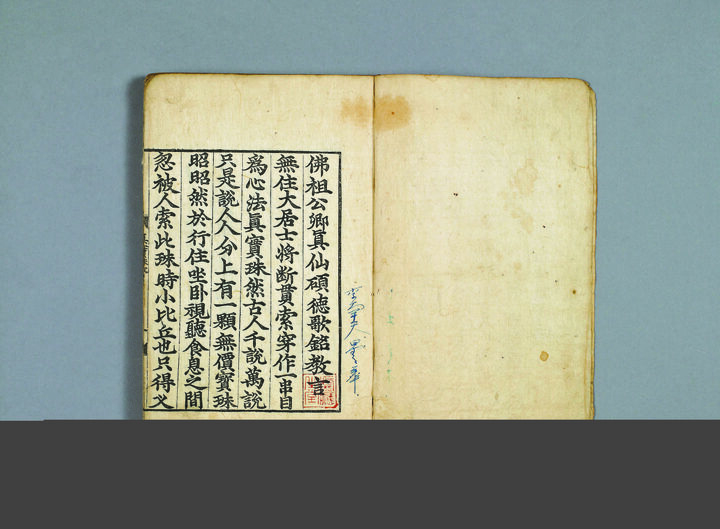 佛祖公卿眞仙碩德歌銘教言
無住大居士將断貫索穿作一串目
爲心法眞寶珠然古人千說萬說
只是說人人分上有一顆無價寶珠
昭昭然於行住坐卧視聽食息之間
忽被人索此珠時小比丘也只得义